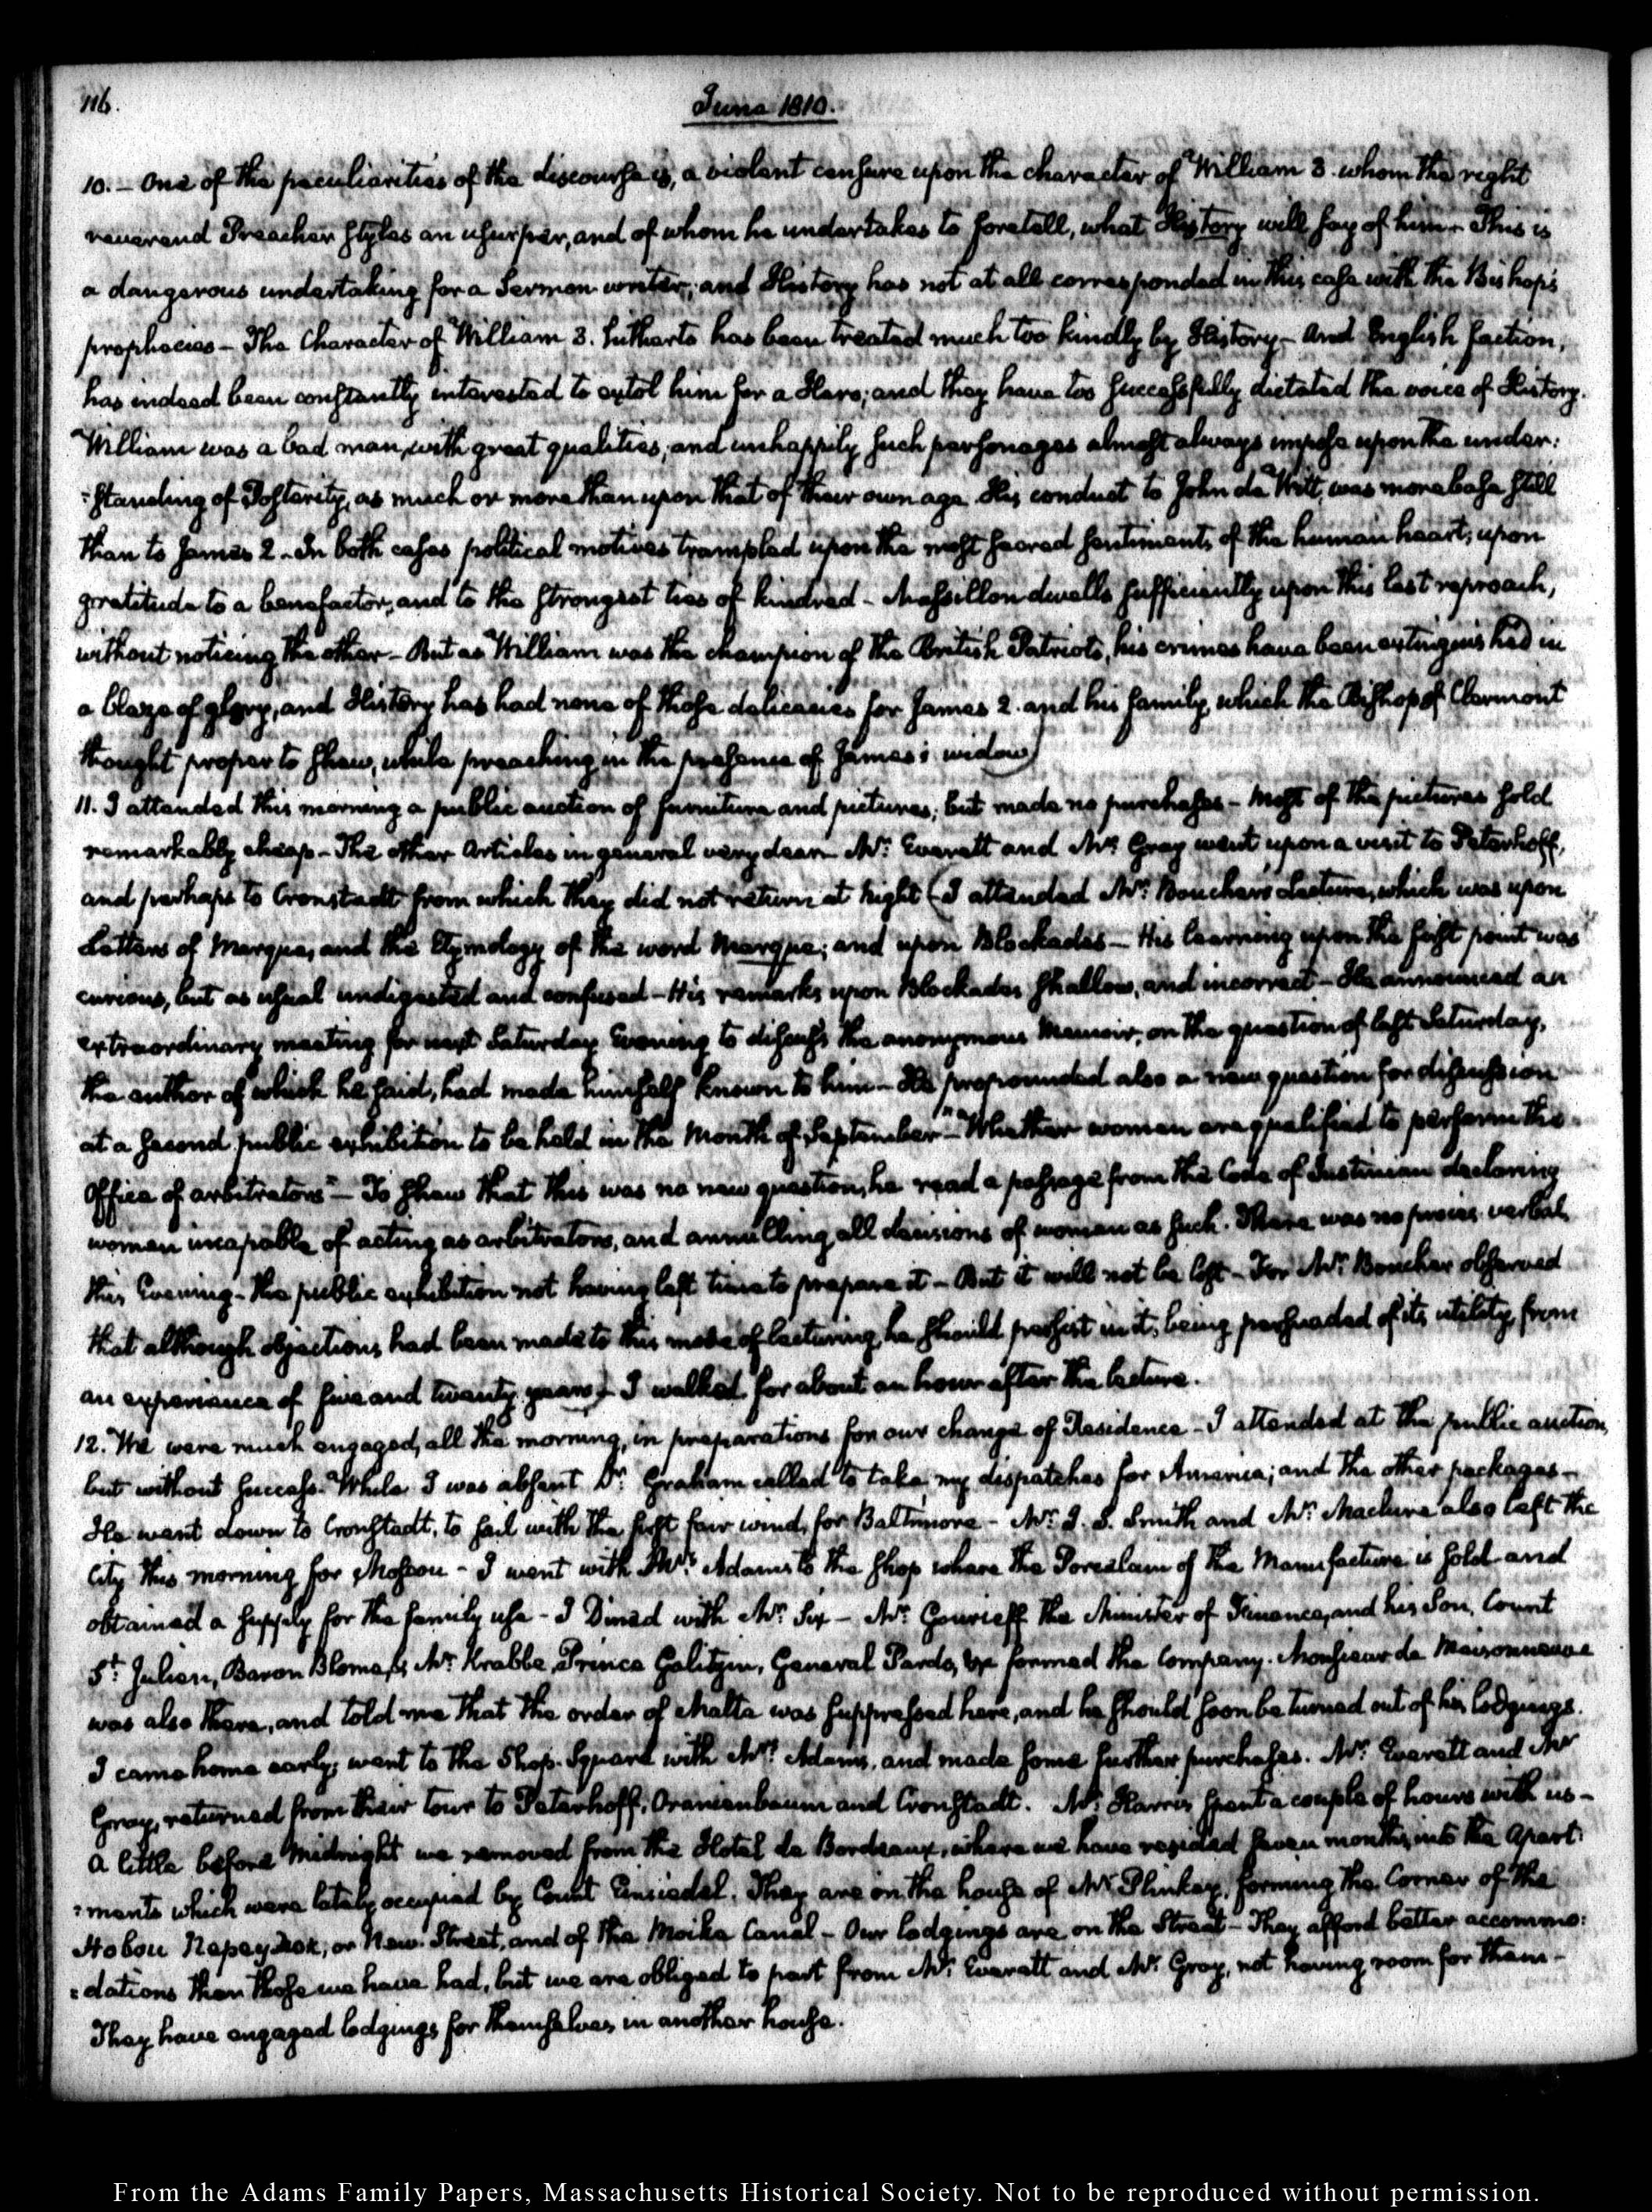 116.
June 1810.
10.— One of the peculiarities of the discourse is, a violent censure upon the character of William 3. whom the right
reverend Preacher styles an usurper, and of whom he undertakes to foretell, what History will say of him— This is
a dangerous undertaking for a Sermon writer; and History has not at all corresponded in this case with the Bishop's
prophecies— The Character of William 3. hitherto has been treated much too kindly by History— And English faction,
has indeed been constantly interested to extol him for a Hero; and they have too successfully dictated the voice of History.
William was a bad man, with great qualities; and unhappily such personages almost always impose upon the under:
:standing of Posterity, as much or more than upon that of their own age. His conduct to John de Witt, was more base still
than to James 2— In both cases political motives trampled upon the most sacred sentiments of the human heart; upon
gratitude to a benefactor, and to the strongest ties of kindred— Massillon dwells sufficiently upon this last reproach,
without noticing the other— But as William was the champion of the British Patriots, his crimes have been extinguished in
a blaze of glory, and History has had none of those delicacies for James 2. and his family, which the Bishop of Clermont
thought proper to shew, while preaching in the presence of James's widow)
11. I attended this morning a public auction of furniture and pictures; but made no purchases— Most of the pictures sold
remarkably cheap— The other Articles in general very dear— Mr. Everett and Mr. Gray went upon a visit to Peterhoff,
and perhaps to Cronstadt from which they did not return at Night (I attended Mr. Boucher's Lecture, which was upon
Letters of Marque, and the Etymology of the word Marque; and upon Blockades— His learning upon the first point was
curious, but as usual undigested and confused— His remarks upon Blockades shallow, and incorrect— He announced an
extraordinary meeting for next Saturday Evening to discuss the anonymous Memoir, on the question of last Saturday,
the author of which he said, had made himself known to him— He propounded also a new question for discussion
at a second public exhibition to be held in the Month of September— "Whether women are qualified to perform the
Office of arbitrators"— To shew that this was no new question, he read a passage from the Code of Justinian declaring
women incapable of acting as arbitrators, and annulling all decisions of women as such. There was no procès verbal,
this Evening— the public exhibition not having left time to prepare it— But it will not be lost— For Mr. Boucher observed
that although objections had been made to this mode of lecturing, he should persist in it; being persuaded of its utility from
an experience of five and twenty years)— I walked for about an hour after the lecture.
12. We were much engaged, all the morning, in preparations for our change of Residence— I attended at the public auction,
but without success. While I was absent Dr. Graham called to take my dispatches for America; and the other packages—
He went down to Cronstadt, to sail with the first fair wind, for Baltimore— Mr. J. S. Smith and Mr. Maclure also left the
City this morning for Moscow— I went with Mrs. Adams to the shop where the Porcelain of the Manufacture is sold and
obtained a supply for the family use— I Dined with Mr. Six— Mr. Gourieff the Minister of Finance, and his Son, Count
St. Julien, Baron Blome, Mr. Krabbe, Prince Galitzin, General Pardo, &c formed the Company. Monsieur de Maisonneuve
was also there, and told me that the order of Malta was suppressed here, and he should soon be turned out of his lodgings.
I came home early; went to the Shop-Square with Mrs. Adams, and made some further purchases. Mr. Everett and Mr
Gray, returned from their tour to Peterhoff, Oranienbaum and Cronstadt. Mr. Harris spent a couple of hours with us—
A little before Midnight we removed from the Hotel de Bordeaux, where we have resided seven months, into the Apart:
:ments which were lately occupied by Count Einsiedel. They are on the house of Mr. Plinkey, forming the Corner of the
Nobou Repeydok, or New Street, and of the Moika Canal— Our lodgings are on the Street— They afford better accommo:
:dations than those we have had, but we are obliged to part from Mr. Everett and Mr. Gray, not having room for them—
They have engaged lodgings for themselves in another house.
From the Adams Family Papers, Massachusetts Historical Society. Not to be reproduced without permission.